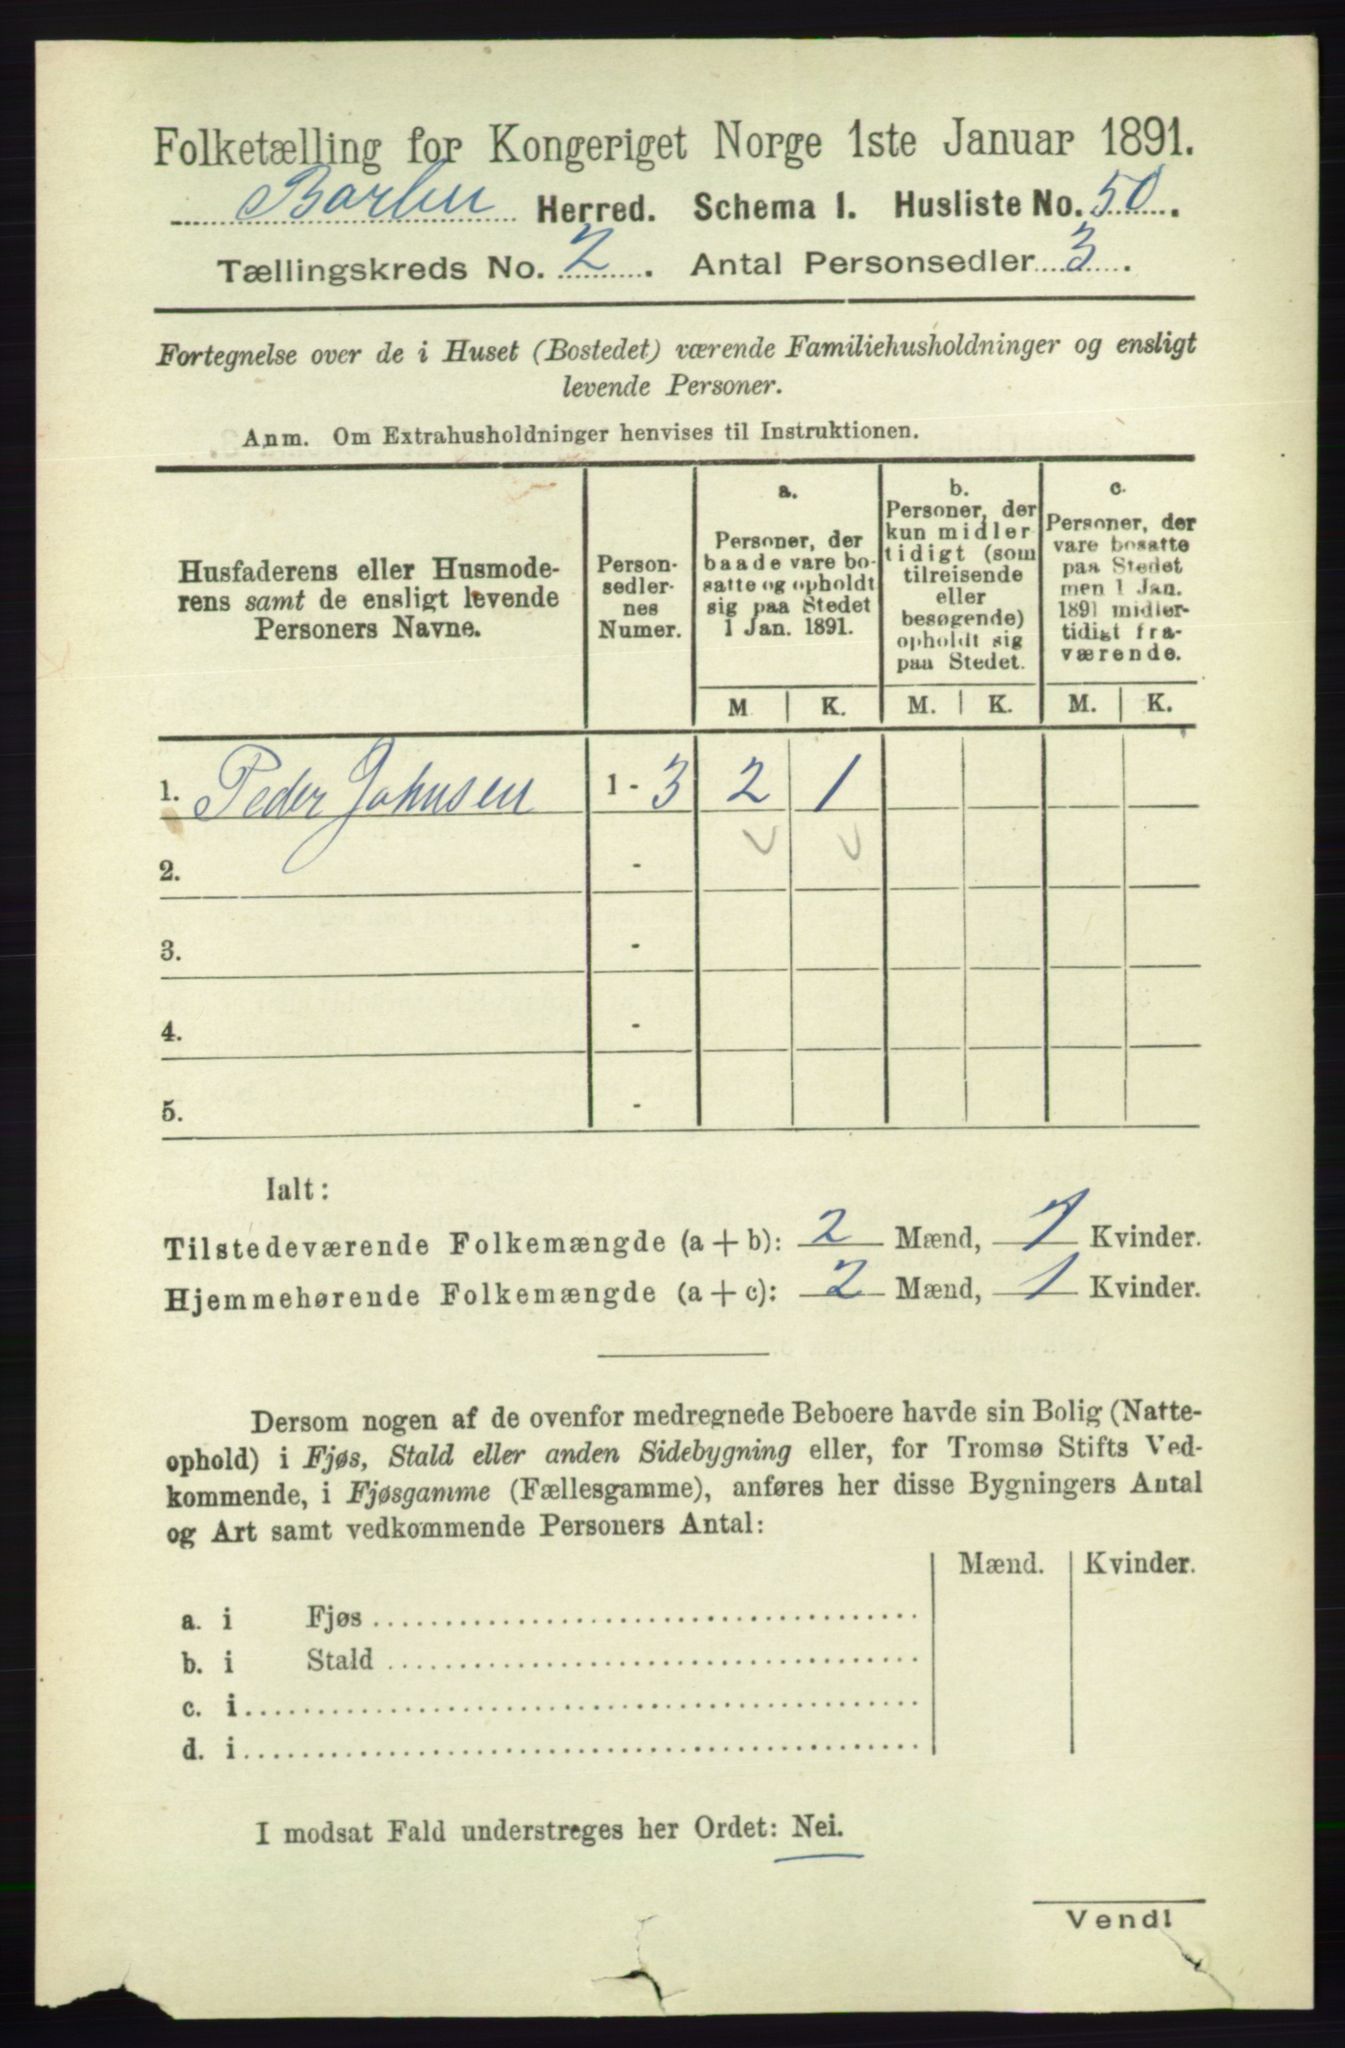 Folketælling for Kongeriget Norge 1ste Januar 1891.
Barbu Herred. Schema 1. Husliste No. 50.
Tællingskreds No. 2. Antal Personsedler 3.
Fortegnelse over de i Huset (Bostedet) værende Familiehusholdninger og ensligt
levende Personer.
Anm. Om Extrahusholdninger henvises til Instruktionen.
Husfaderens eller Husmode-
rens samt de ensligt levende
Personers Navne.
Person-
sedler-
nes
Numer.
a.
Personer, der
baade vare bo-
satte og opholdt
sig paa Stedet
1 Jan. 1891.
b.
Personer, der
kun midler
tidigt (som
tilreisende
eller
besøgende)
opholdt sig
paa Stedet.
c.
Personer, der
vare bosatte
paa Stedet
men 1 Jan.
1891 midler-
tidigt fra-
værende.
M K. M. K. M. K.
1. Peder Johnsen 1 - 3 2 1
2. -
3. -
4. -
5. -
Ialt:
Tilstedeværende Folkemængde (a + b): 2 Mænd, 1 Kvinder.
Hjemmehørende Folkemængde (a + c): 2 Mænd, 1 Kvinder.
Dersom nogen af de ovenfor medregnede Beboere havde sin Bolig (Natte-
ophold) i Fjøs, Stald eller anden Sidebygning eller, for Tromsø Stifts Ved-
kommende, i Fjøsgamme (Fællesgamme), anføres her disse Bygningers Antal
og Art samt vedkommende Personers Antal:
Mænd. Kvinder.
a. i Fjøs
b. i Stald
c. i
d. i
I modsat Fald understreges her Ordet: Nei.
Vend!